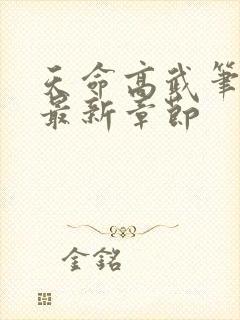 天命高武笔
最新章節
金銘